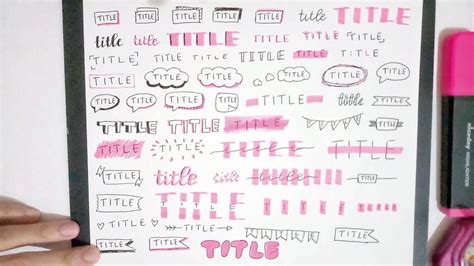 TITLE TITLE TITLE TITLE TITLE title TITLE
title title TITLE TITLE TITLE TITLE
TITLE TITLE TITLE title TITLE TITLE TITLE
TITLE TITLE TITLE TITLE TITLE TITLE
TITLE TITLE TITLE TITLE title TITLE
TITLE TITLE TITLE TITLE
TITLE TITLE TITLE TITLE
TITLE title title TITLE TITLE
TITLE TITLE TITLE TITLE TITLE
TITLE TITLE TITLE
TITLE TITLE TITLE TITLE
HIGHLIGHTER